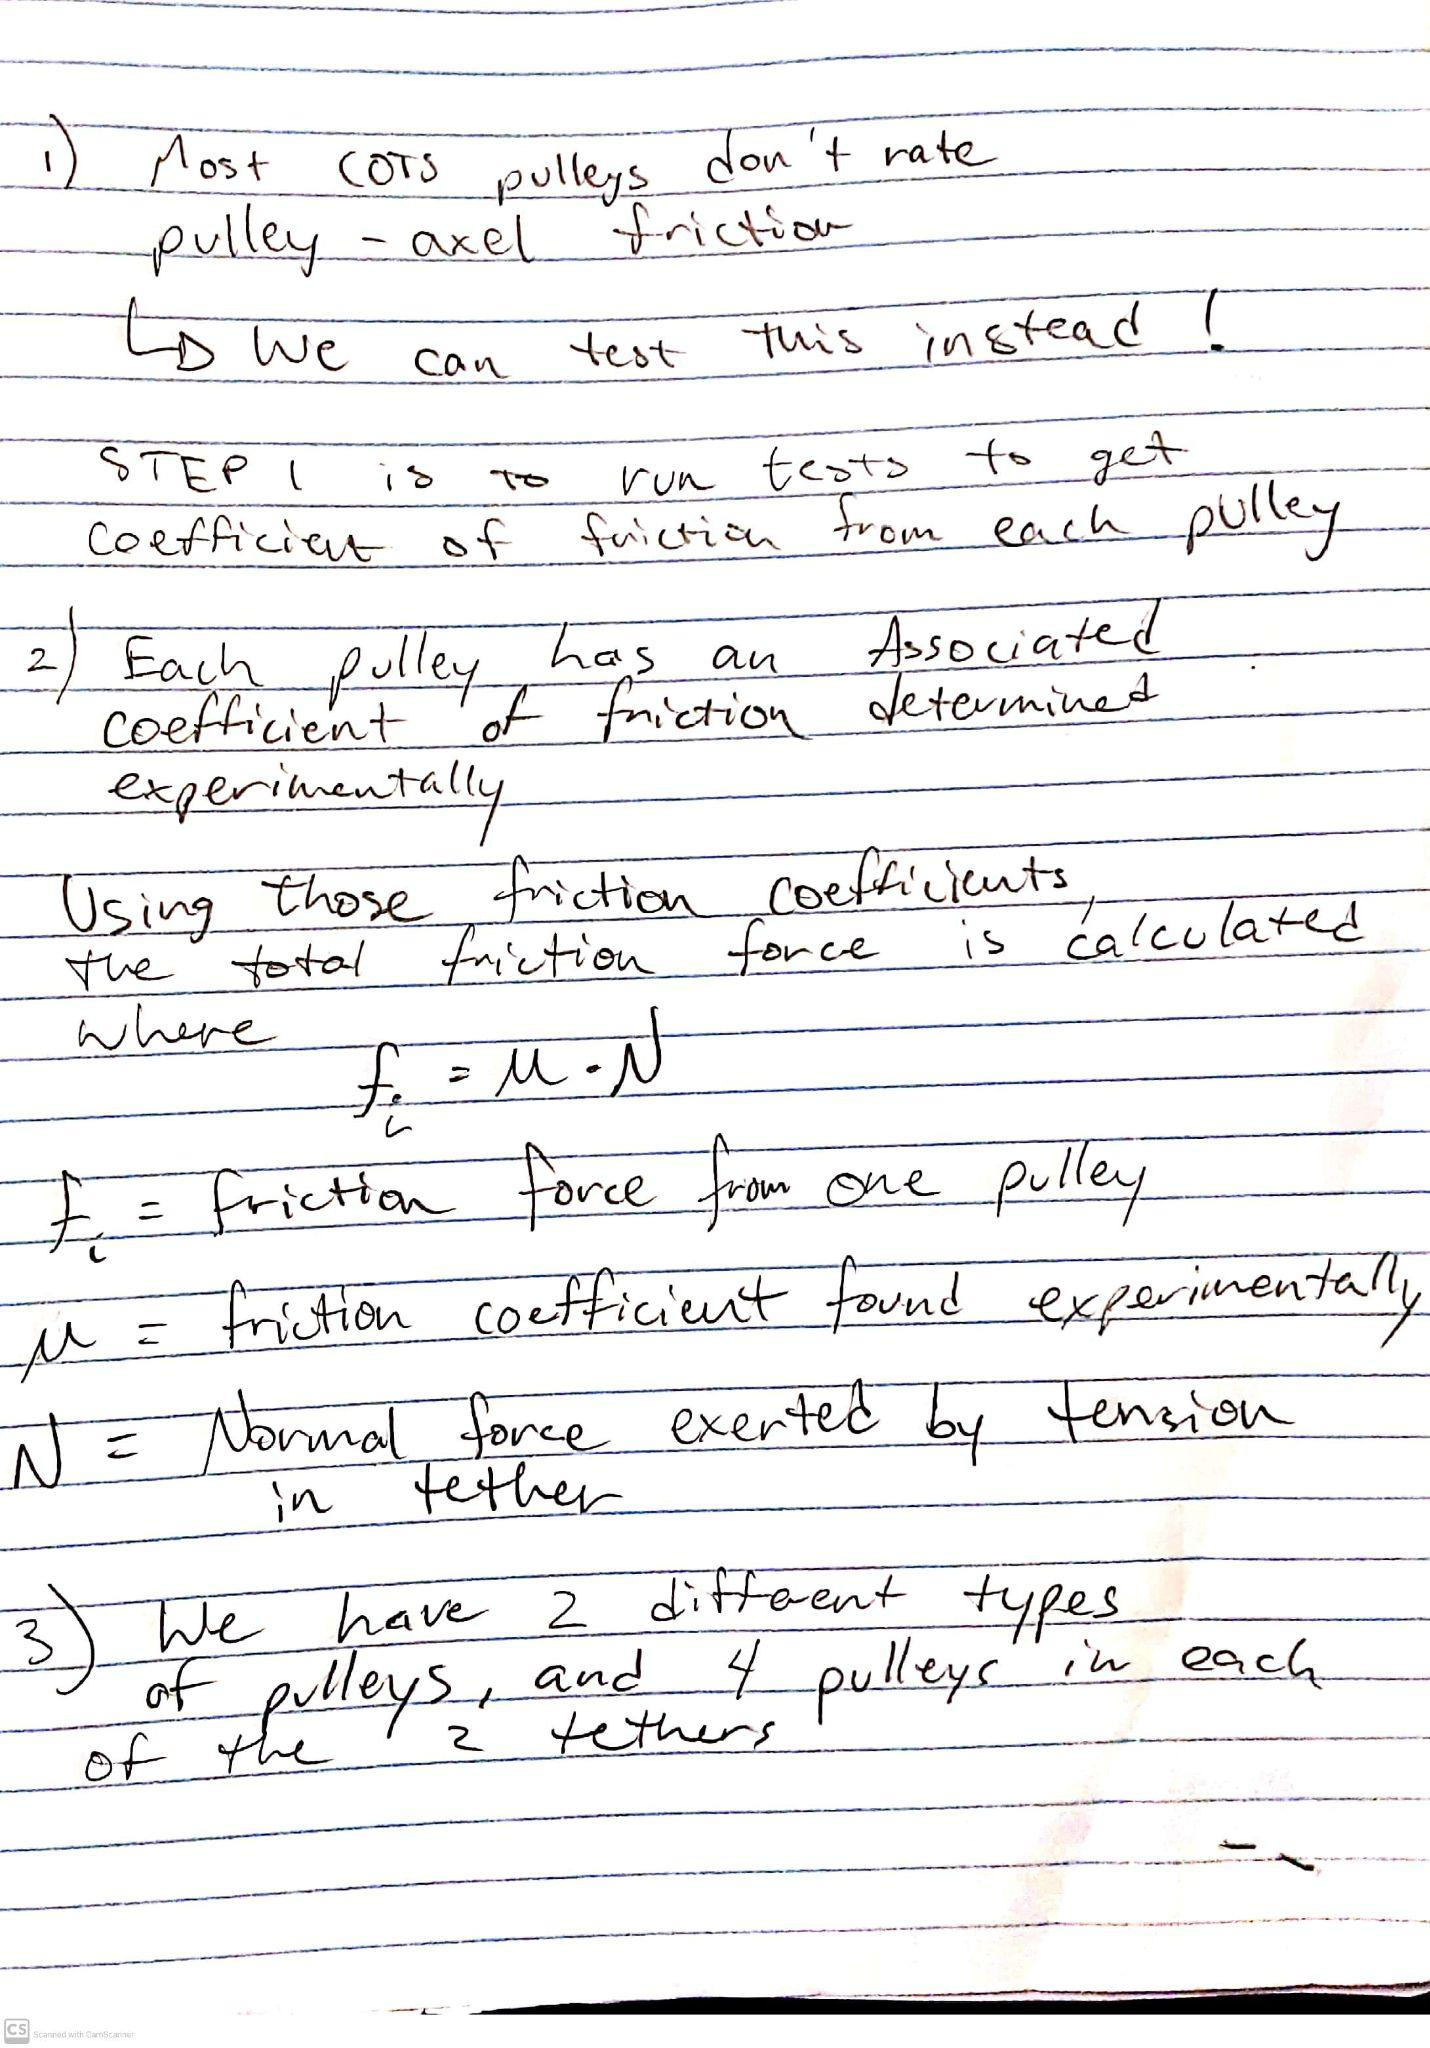 1) Most COTS pulleys don't rate
pulley - axel friction
↳ We can test this instead!
STEP 1 is to run tests to get
coefficient of friction from each pulley
2) Each pulley has an Associated
coefficient of friction determined
experimentally
Using those friction coefficients,
the total friction force is calculated
where
fᵢ = μ · N
fᵢ = friction force from one pulley
μ = friction coefficient found experimentally
N = Normal force exerted by tension
in tether
3) We have 2 different types
of pulleys, and 4 pulleys in each
of the 2 tethers
CS Scanned with CamScanner